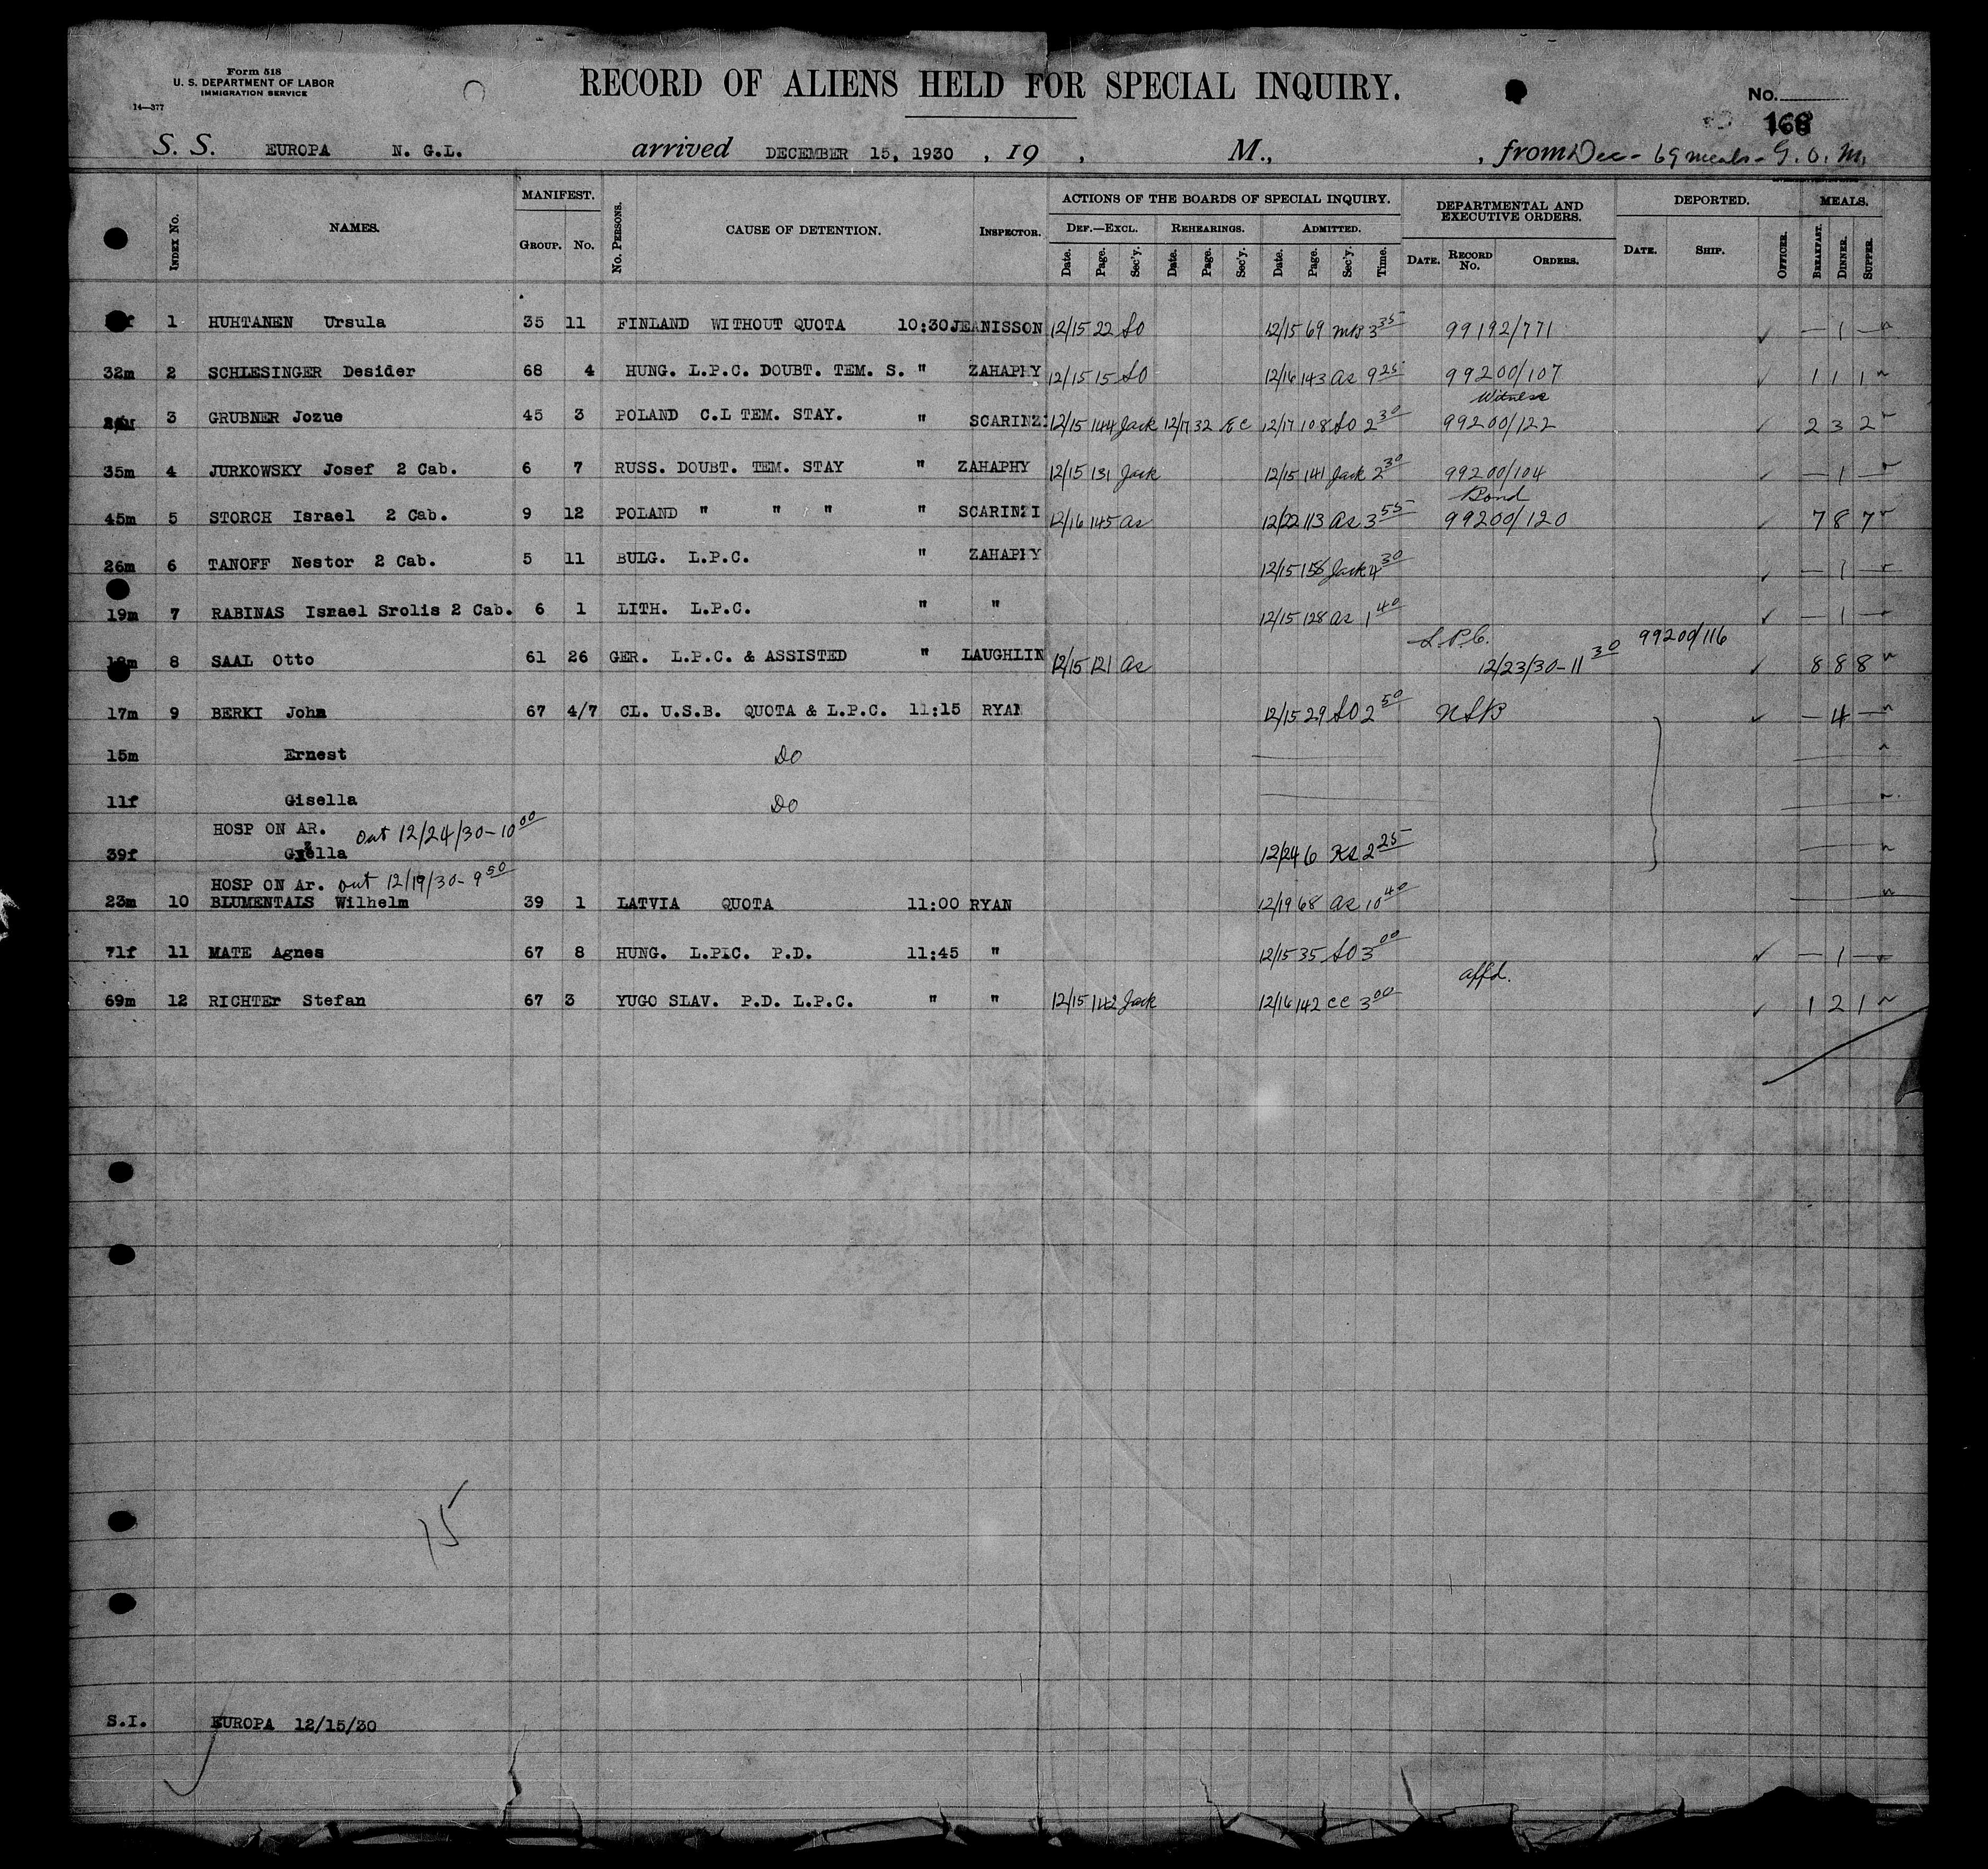 Form 518
U. S. DEPARTMENT OF LABOR
IMMIGRATION SERVICE
14—377
RECORD OF ALIENS HELD FOR SPECIAL INQUIRY.
No.
168
S. S. EUROPA N. G.L. arrived DECEMBER 15, 1930 , 19 , M., , from Dec - 69 meals - G. O. M.
INDEX No. NAMES. MANIFEST. GROUP. No. No. PERSONS. CAUSE OF DETENTION. INSPECTOR. ACTIONS OF THE BOARDS OF SPECIAL INQUIRY. DEF.—EXCL. Date. Page. Sec'y. REHEARINGS. Date. Page. Sec'y. ADMITTED. Date. Page. Sec'y. Time. DEPARTMENTAL AND EXECUTIVE ORDERS. DATE. RECORD No. ORDERS. DEPORTED. DATE. SHIP. OFFICER. MEALS. BREAKFAST. DINNER. SUPPER.
f 1 HUHTANEN Ursula 35 11 FINLAND WITHOUT QUOTA 10:30 JEANISSON 12/15 22 SO 12/15 69 3 35 99192/771 — 1 —
32m 2 SCHLESINGER Desider 68 4 HUNG. L.P.C. DOUBT. TEM. S. " ZAHAPHY 12/15 15 SO 12/16 143 as 9 25 99200/107 1 1 1
Witness
3 GRUBNER Jozue 45 3 POLAND C.L TEM. STAY. " SCARINZI 12/15 144 Jack 12/17 32 EC 12/17 108 SO 2 30 99200/122 2 3 2
35m 4 JURKOWSKY Josef 2 Cab. 6 7 RUSS. DOUBT. TEM. STAY " ZAHAPHY 12/15 131 Jack 12/15 141 Jack 2 30 99200/104 — 1 —
Bond
45m 5 STORCH Israel 2 Cab. 9 12 POLAND " " " " SCARINZI 12/16 145 as 12/22 113 as 3 55 99200/120 7 8 7
26m 6 TANOFF Nestor 2 Cab. 5 11 BULG. L.P.C. " ZAHAPHY 12/15 156 Jack 4 30 — 1 —
19m 7 RABINAS Israel Srolis 2 Cab. 6 1 LITH. L.P.C. " " 12/15 128 as 1 40 — 1 —
L.P.C. 99200/116
18m 8 SAAL Otto 61 26 GER. L.P.C. & ASSISTED " LAUGHLIN 12/15 121 as 12/23/30-11 30 8 8 8
17m 9 BERKI John 67 4/7 CL. U.S.B. QUOTA & L.P.C. 11:15 RYAN 12/15 29 SO 2 50 — 4 —
15m Ernest Do
11f Gisella Do
HOSP ON AR. out 12/24/30-10 00
39f Gzella 12/24 6 2 25
HOSP ON Ar. out 12/19/30- 9 50
23m 10 BLUMENTALS Wilhelm 39 1 LATVIA QUOTA 11:00 RYAN 12/19 68 as 10 40
71f 11 MATE Agnes 67 8 HUNG. L.PIC. P.D. 11:45 " 12/15 35 SO 3 00 — 1 —
affd.
69m 12 RICHTEr Stefan 67 3 YUGO SLAV. P.D. L.P.C. " " 12/15 142 Jack 12/16 142 CC 3 00 1 2 1
15
S.I. EUROPA 12/15/30